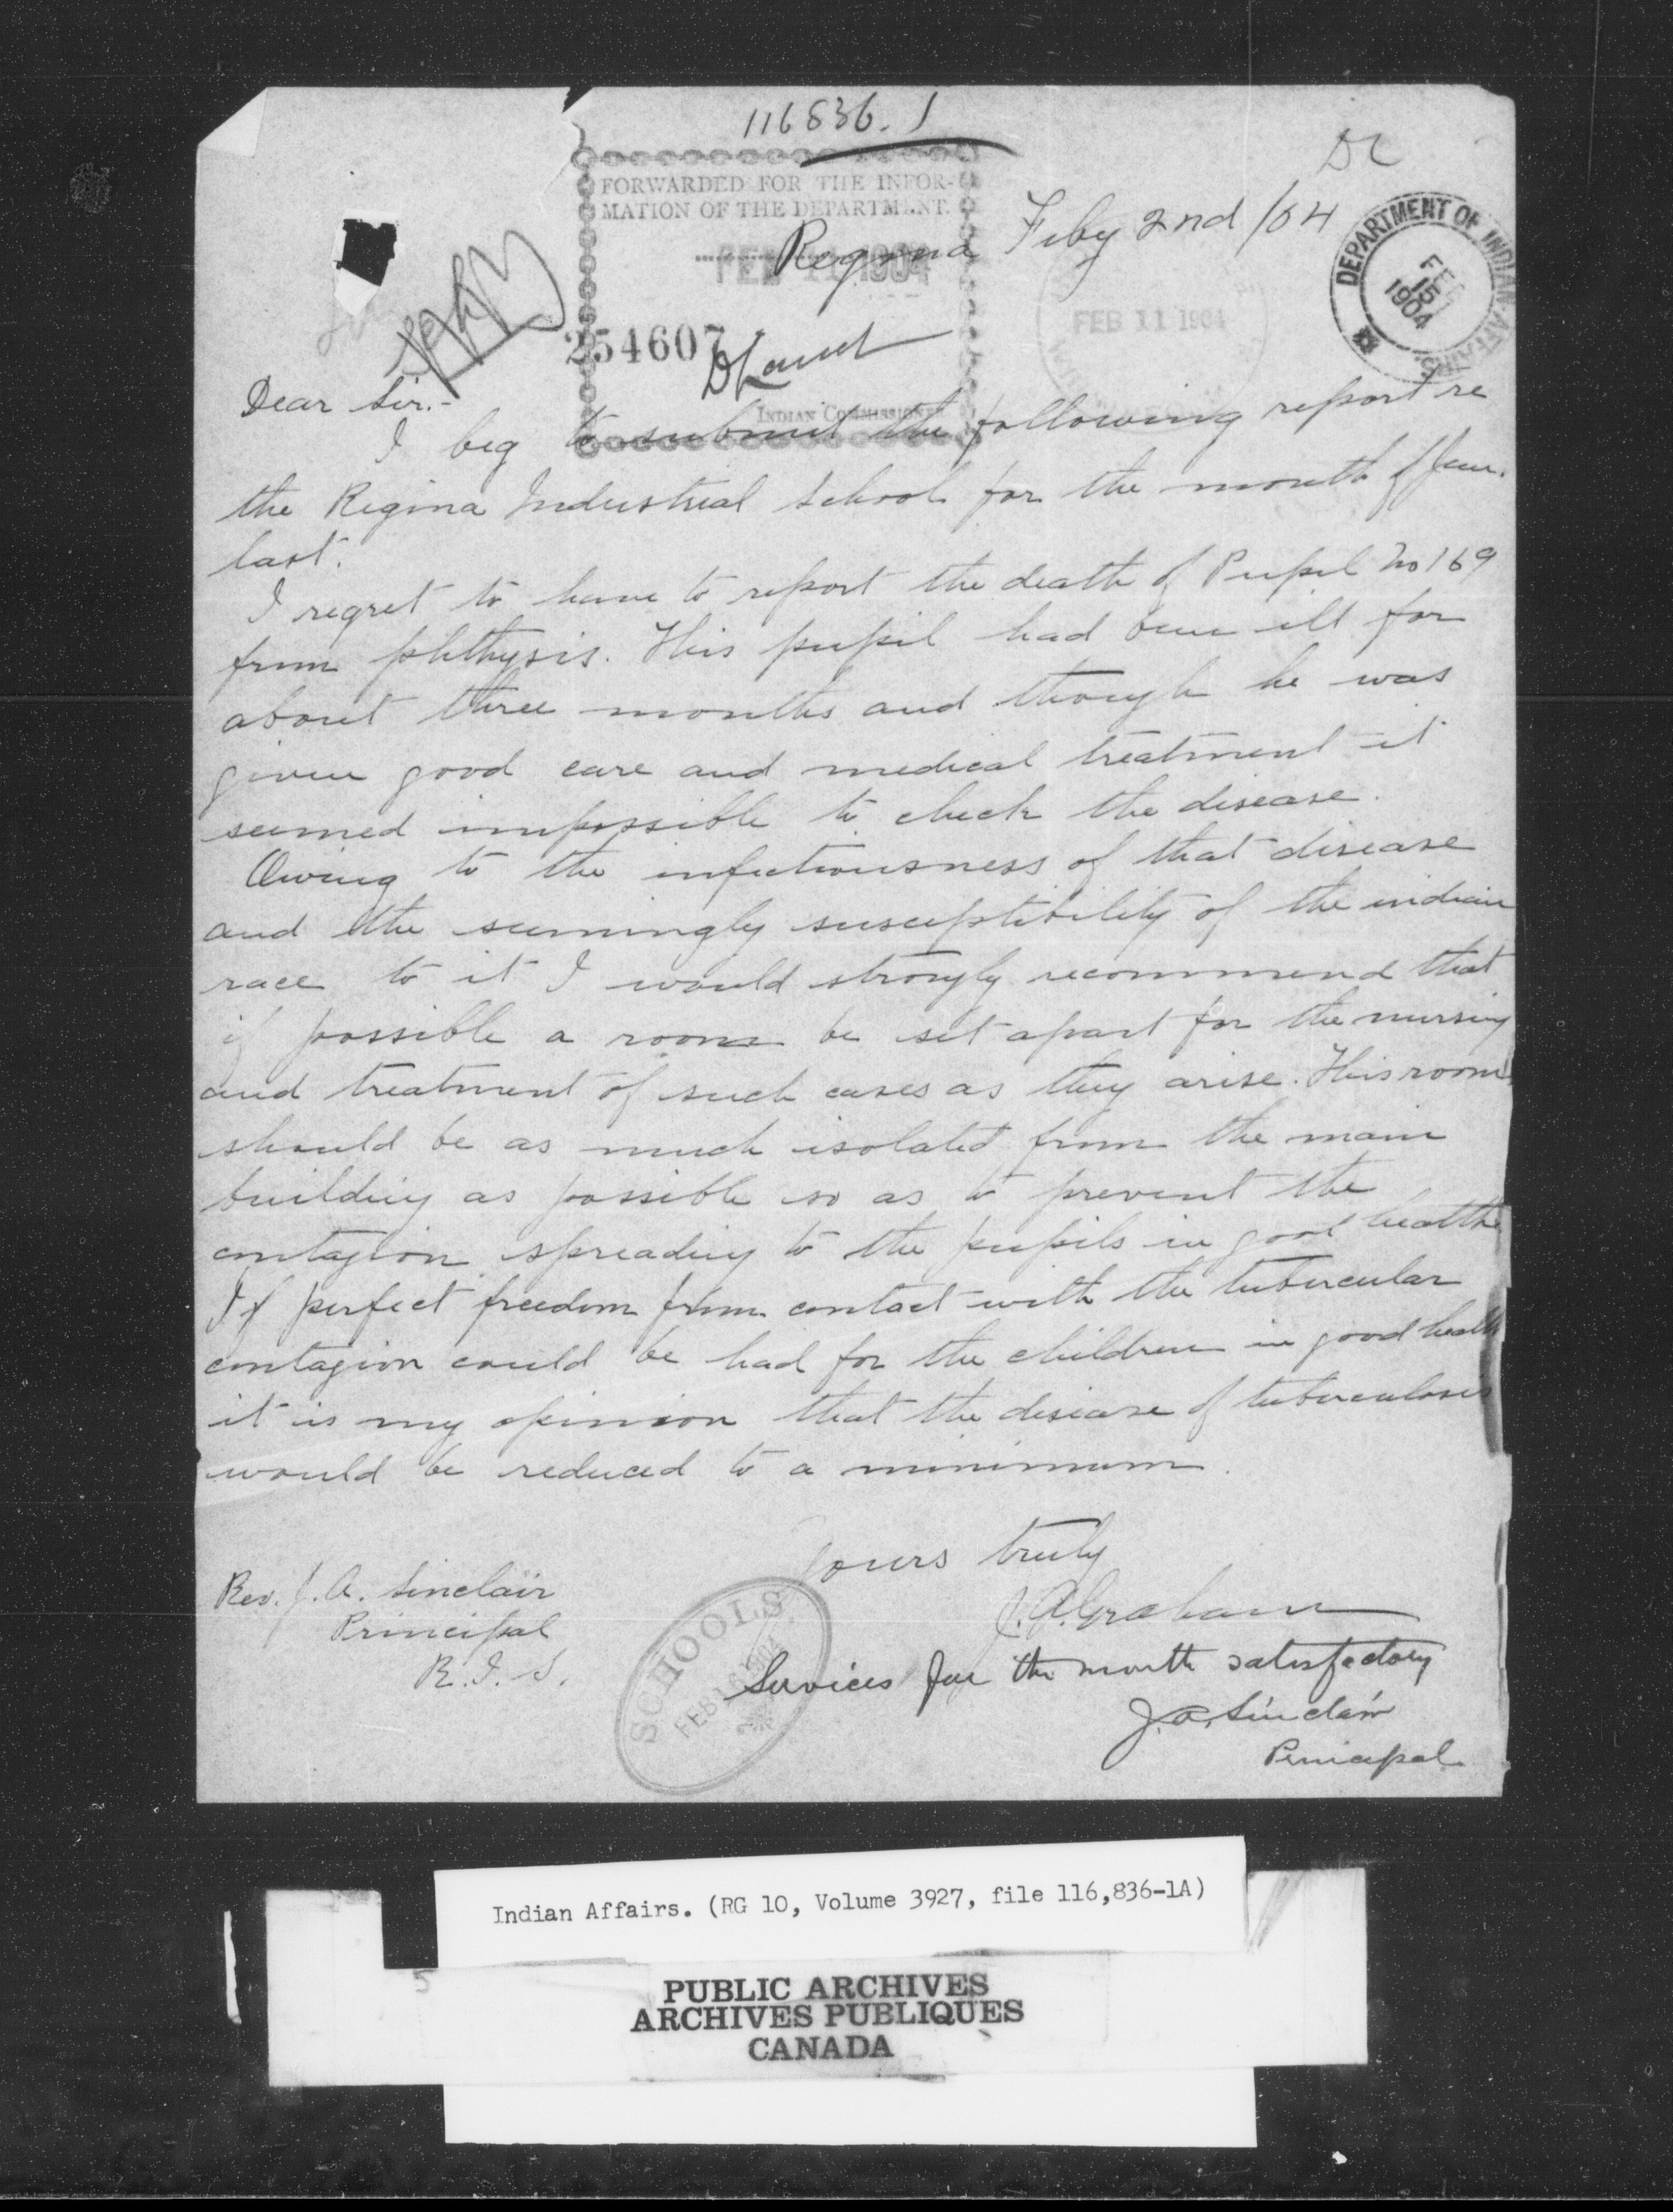 116836. 1
DC
FORWARDED FOR THE INFOR-
MATION OF THE DEPARTMENT.
Regina Feby 2nd /04
FEB 1904
DEPARTMENT OF INDIAN AFFAIRS.
FEB 15 1904
FEB 11 1904
254607
INDIAN COMMISSIONER
Dear Sir.-
I beg to submit the following report re
the Regina Industrial School for the month of Jan.
last.
I regret to have to report the death of Pupil No 169
from phthysis. This pupil had been ill for
about three months and though he was
given good care and medical treatment it
seemed impossible to check the disease.
Owing to the infectiousness of that disease
and the seemingly susceptibility of the indian
race to it I would strongly recommend that
if possible a room be set apart for the nursing
and treatment of such cases as they arise. This room
should be as much isolated from the main
building as possible so as to prevent the
contagion spreading to the pupils in good health
If perfect freedom from contact with the tubercular
contagion could be had for the children in good health
it is my opinion that the disease of tuberculosis
would be reduced to a minimum.
Yours truly
J. A. Graham
Rev. J. A. Sinclair
Principal
R. I. S.
SCHOOLS
FEB 16 1904
Services for the month satisfactory
J. A. Sinclair
Principal
Indian Affairs. (RG 10, Volume 3927, file 116,836-1A)
5
PUBLIC ARCHIVES
ARCHIVES PUBLIQUES
CANADA